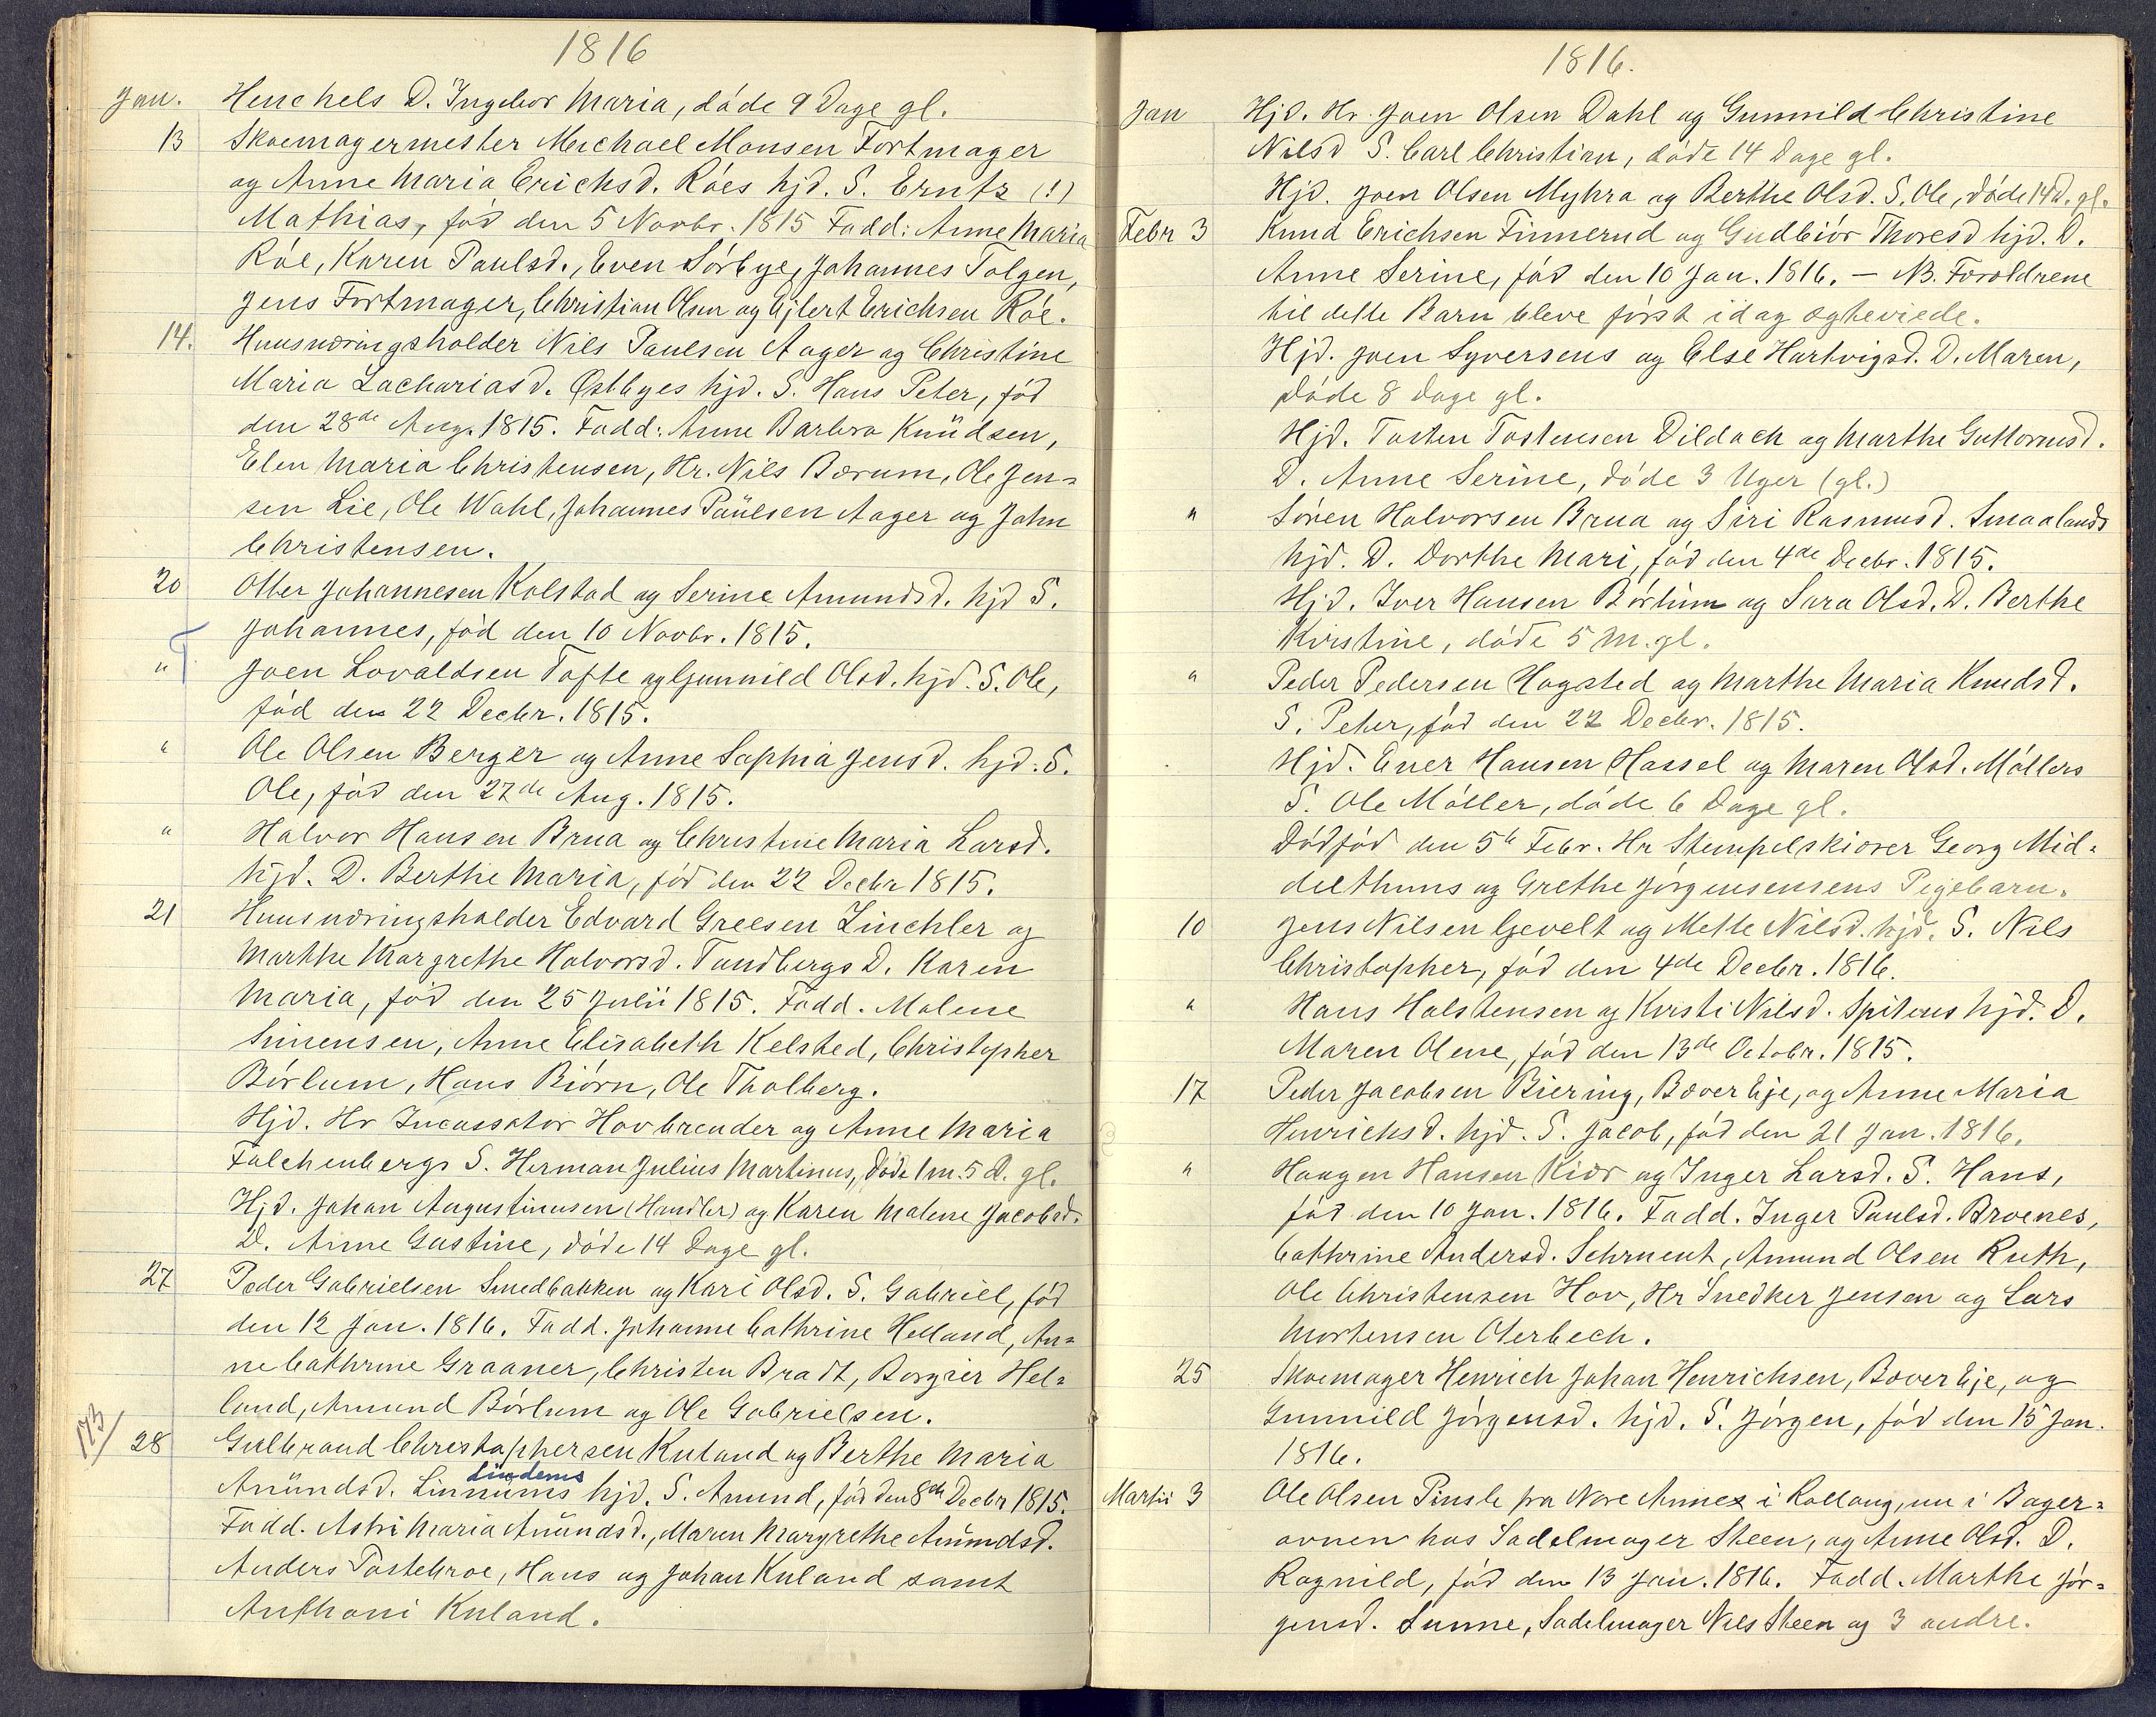 1816
Jan. Henchels D. Ingebor Maria, døde 9 Dage gl.
13 Skoemagermester Michael Monsen Fortmager
og Anne Maria Erichsd. Röes hjd. S. Erntz (!)
Mathias, fød den 5 Novbr. 1815 Fadd: Anne Maria
Röe, Karen Paulsd., Even Sörbye, Johannes Tolgen,
Jens Fortmager, Christian Olsen og Ejlert Erichsen Röe.
14. Huusnæringsholder Nils Paulsen Aager og Christine
Maria Zachariasd. Østbyes hjd. S. Hans Peter, fød
den 28de Aug. 1815. Fadd: Anne Barbra Knüdsen,
Elen Maria Christensen, Hr. Nils Bærum, Ole Jen=
sen Lie, Ole Wahl, Johannes Paülsen Aager og John
Christensen.
20 Otter Johannesen Kolstad og Serine Amundsd. hjd S.
Johannes, fød den 10 Novbr. 1815.
" Joen Lovaldsen Tofte og Gunnild Olsd. hjd. S. Ole,
fød den 22 Decbr. 1815.
" Ole Olsen Berger og Anne Sophia Jensd. hjd. S.
Ole, fød den 27de Aug. 1815.
" Halvor Hansen Brua og Christine Maria Larsd.
hjd. D. Berthe Maria, fød den 22 Decbr 1815.
21 Huusnæringsholder Edvard Greesen Zinchler og
Marthe Margrethe Halvorsd. Tandbergs D. Karen
Maria, fød den 25 Julii 1815. Fadd. Malene
Simensen, Anne Elisabeth Kelsted, Christopher
Börlum, Hans Biörn, Ole Thalberg.
Hjd. Hr Incassator Hovbrender og Anne Maria
Falchenbergs S. Herman Julius Martinus, døde 1 m. 5 d. gl.
Hjd. Johan Augustinusen (Handler) og Karen Malene Jacobsd.
D. Anne Gustine, døde 14 Dage gl.
27 Peder Gabrielsen Smedbakken og Kari Olsd. S. Gabriel, fød
den 12 Jan. 1816. Fadd. Johanne Cathrine Helland, An=
ne Cathrine Graaner, Christen Bradt, Borgier Hel=
land, Amund Börlum og Ole Gabrielsen.
173/ 28 Gulbrand Christophersen Kuland og Berthe Maria
Lindems
Amündsd. Linnums hjd. S. Amund, fød den 8de Decbr 1815.
Fadd. Astri Maria Amündsd., Maren Margrethe Amündsd.
Anders Pastebroe, Hans og Johan Kuland samt
Anthoni Kuland.
1816.
Jan Hjd. Hr. Joen Olsen Dahl og Gunnild Christine
Nilsd S. Carl Christian, døde 14 Dage gl.
Hjd. Joen Olsen Myhra og Berthe Olsd. S. Ole, døde 14 d. gl.
Febr 3 Knud Erichsen Finnerud og Gudbiör Thoresd hjd. D.
Anne Serine, fød den 10 Jan. 1816. — NB. Foreldrene
til dette Barn bleve först idag egteviede.
Hjd. Joen Syversens og Else Hartvigsd. D. Maren,
døde 8 Dage gl.
Hjd. Tosten Tostensen Vildach og Marthe Guttormsd.
D. Anne Serine, døde 3 Uger (gl.)
" Sören Halvorsen Brua og Siri Rasmusd. Smaalands
hjd. D. Dorthe Mari, fød den 4de Decbr. 1815.
Hjd. Iver Hansen Börlum og Sara Olsd. D. Berthe
Kirstine, døde 5 M. gl.
" Peder Pedersen Hogsted og Marthe Maria Knudsd.
S. Peter, fød den 22 Decbr. 1815.
Hjd. Ener Hansen Hassel og Maren Olsd. Möllers
S. Ole Möller, døde 6 Dage gl.
Dödfød den 5te Febr. Hr Stempelskiærer Georg Mid=
delthuns og Grethe Jørgensensens Pigebarn.
10 Jens Nilsen Gevelt og Mette Nilsd. hjd. S. Nils
Christopher, fød den 4de Decbr. 1816.
" Hans Halstensen og Kirsti Nilsd. Spitens hjd. D.
Maren Olene, fød den 13de Octobr. 1815.
17 Peder Jacobsen Biering, Bæver Eje, og Anne Maria
Henrichsd. hjd. S. Jacob, fød den 21 Jan. 1816.
" Haagen Hansen Kiær og Inger Larsd. S. Hans,
fød den 10 Jan. 1816. Fadd. Inger Paulsd. Broenes,
Cathrine Andersd. Schruent, Amund Olsen Ruth,
Ole Christensen Hov, Hr Snedker Jensen og Lars
Mortensen Oterbech.
25 Skoemager Henrich Johan Henrichsen, Bæver Eje, og
Gunnild Jörgensd. hjd. S. Jörgen, fød den 15 Jan.
1816.
Martii 3 Ole Olsen Pinsle fra Nore Annex i Rollaug, nu i Bager=
ovnen hos Sadelmager Steen, og Anne Olsd. D.
Ragnild, fød den 13 Jan. 1816. Fadd. Marthe Jör=
gensd. Sunne, Sadelmager Nils Steen og 3 andre.